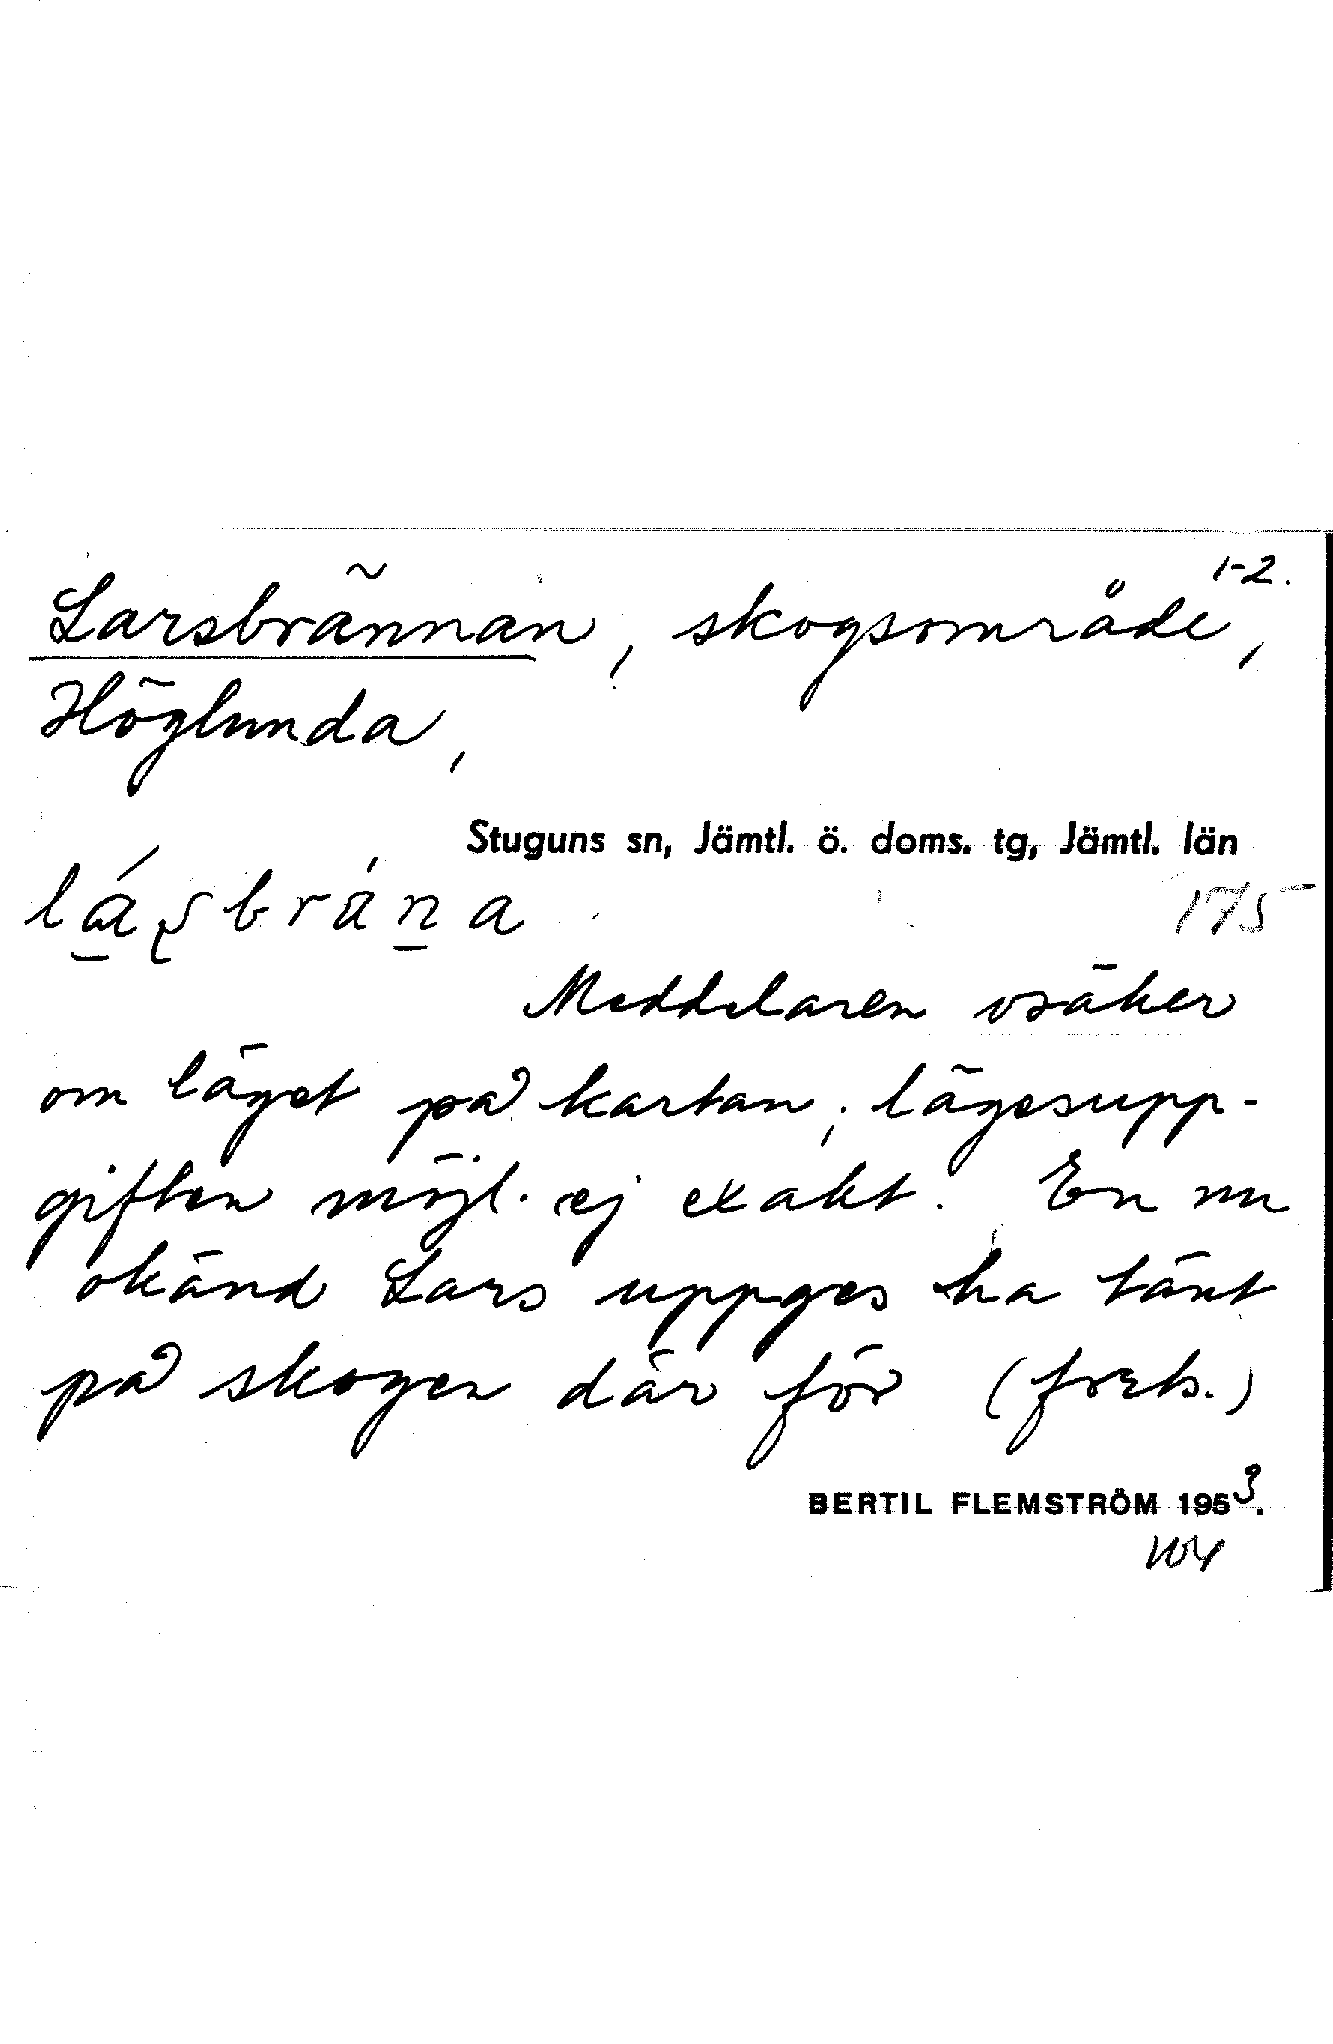 1-2.
Larsbrännan, skogsområde,
Höglunda,
Stuguns sn, Jämtl. ö. doms. tg, Jämtl. län
175
Meddelaren osäker
om läget på kartan; lägesupp-
giften möjl. ej exakt. En nu
okänd Lars uppges ha tänt
på skogen där för
BERTIL FLEMSTRÖM 1953.
104